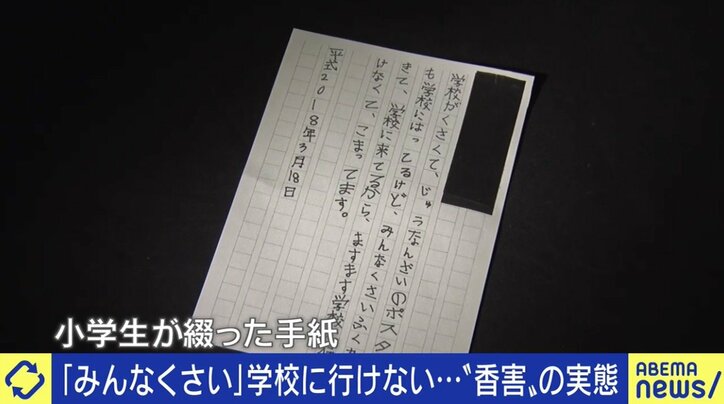 学校がくさくて、じゅうなんざいのポスタ
も学校にはってるけど、みんなくさいふく
きて、学校に来てるから、ますます学校
けなくて、こまってます。
平式2018年3月18日
小学生が綴った手紙
「みんなくさい」学校に行けない…〝香害〟の実態
ABEMA
NEWS/